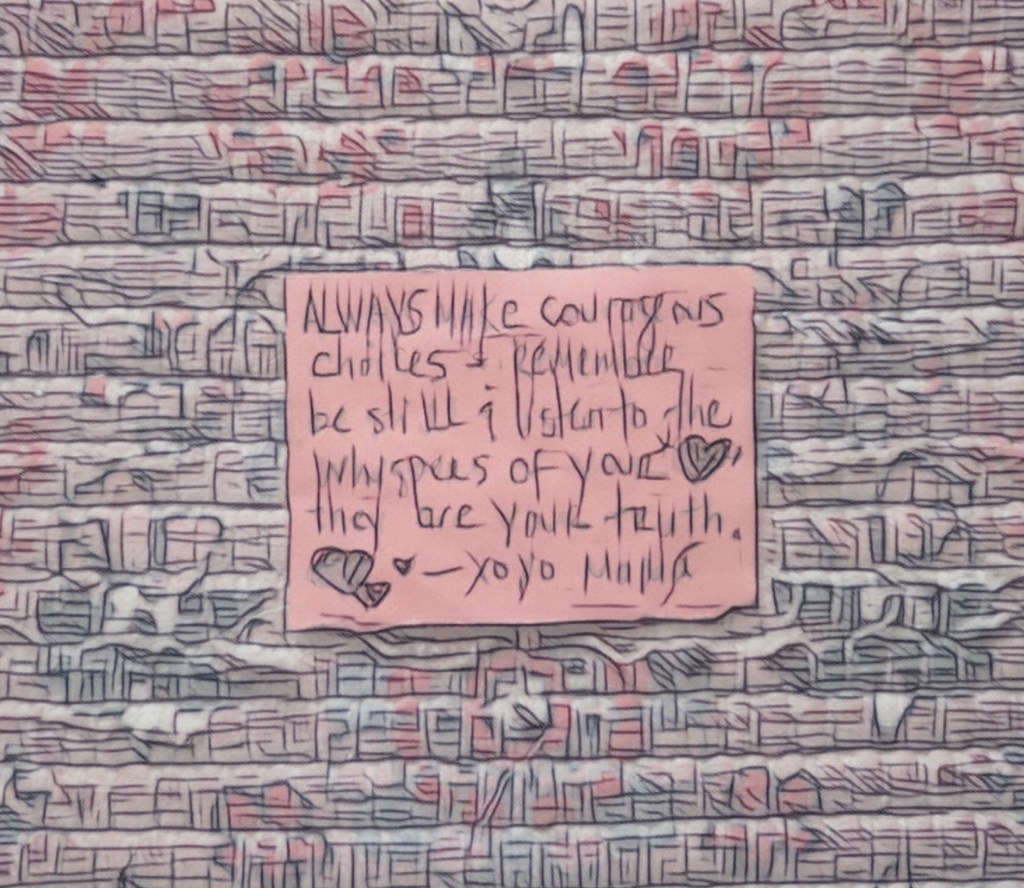 ALWAYS MAKE courageous
choices & REMEMBER
be still & listen to the
whispers of your
they are your truth.
— yoyo MAMA